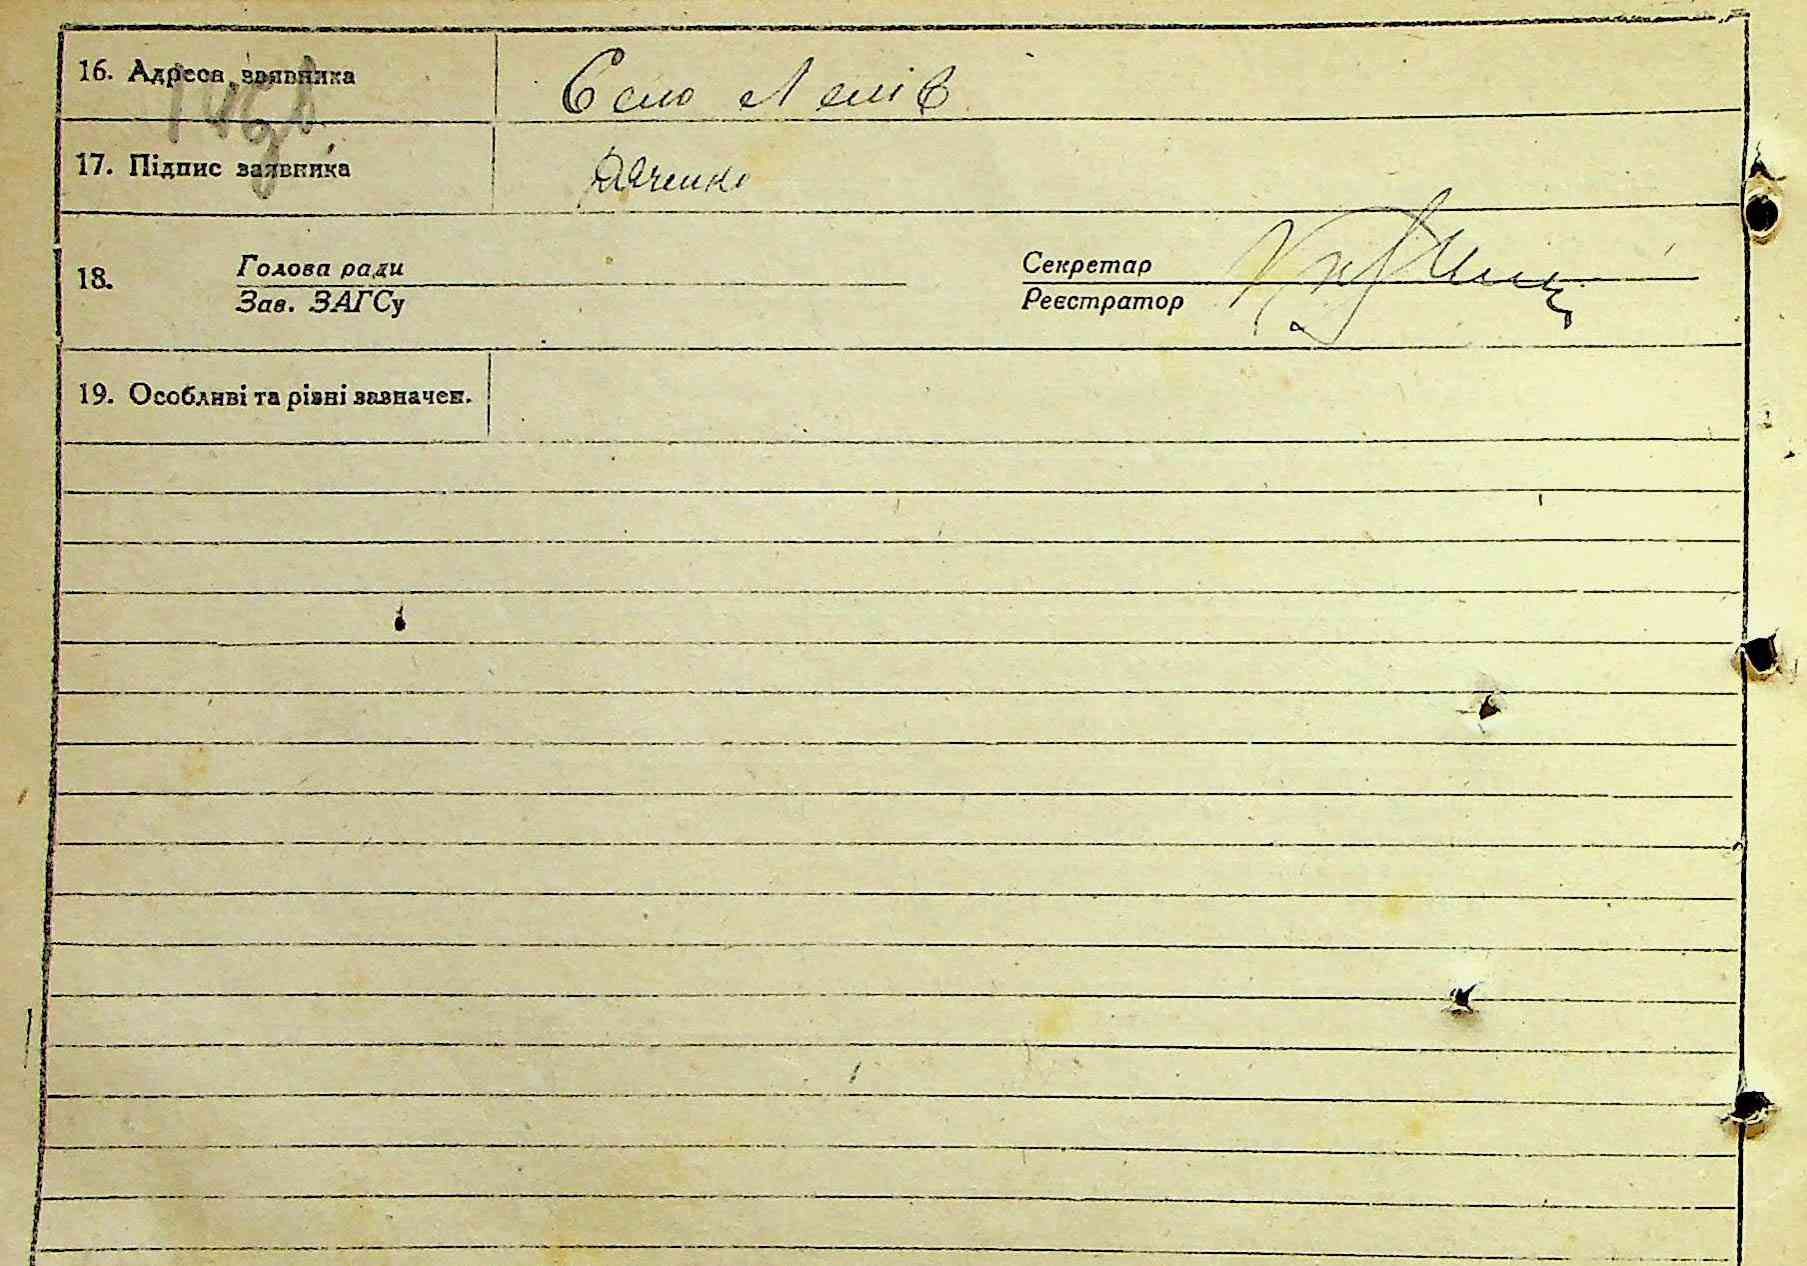 16. Адреса заявника Село Лелів
17. Підпис заявника Дяченко
18. Голова ради Секретар
Зав. ЗАГСу Реєстратор
19. Особливі та різні зазначен.